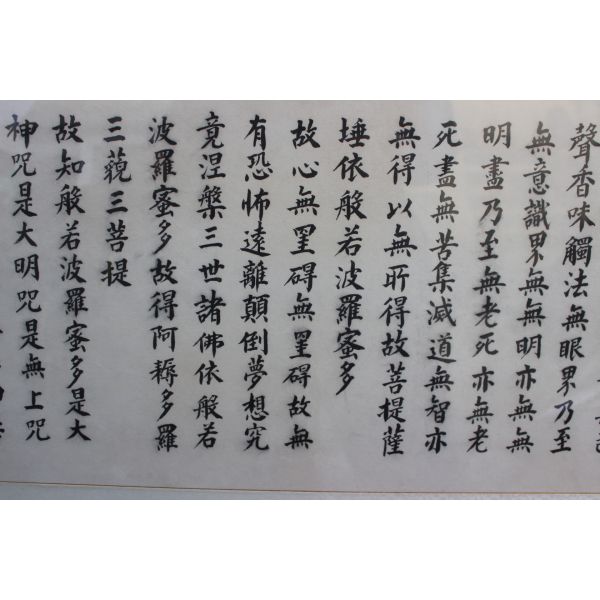 聲香味觸法無眼界乃至
無意識界無無明亦無無
明盡乃至無老死亦無老
死盡無苦集滅道無智亦
無得以無所得故菩提薩
埵依般若波羅蜜多
故心無罣碍無罣碍故無
有恐怖遠離顛倒夢想究
竟涅槃三世諸佛依般若
波羅蜜多故得阿耨多羅
三藐三菩提
故知般若波羅蜜多是大
神呪是大明呪是無上呪